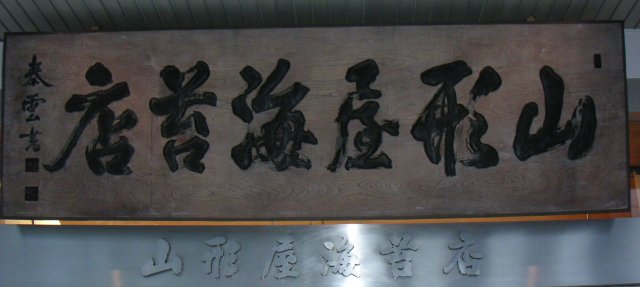 山形屋海苔店
春雲書
山形屋海苔店